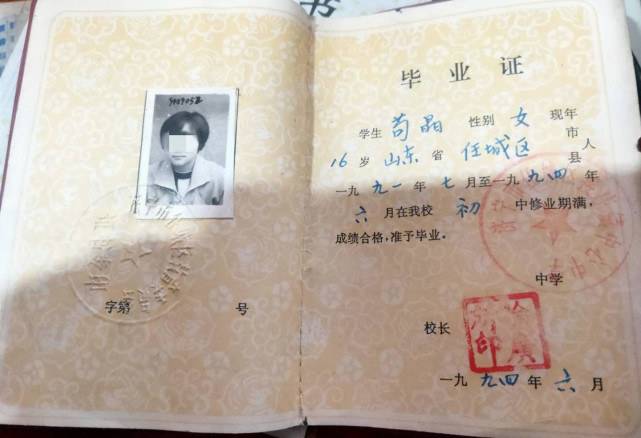 书
9409052
字第 号
毕业证
学生 苟晶 性别 女 现年
16 岁 山东 省 任城区 市县 人
一九九一年七月至一九九四年
六月在我校 初 中修业期满，
成绩合格，准予毕业。
中学
校长
一九九四年六月